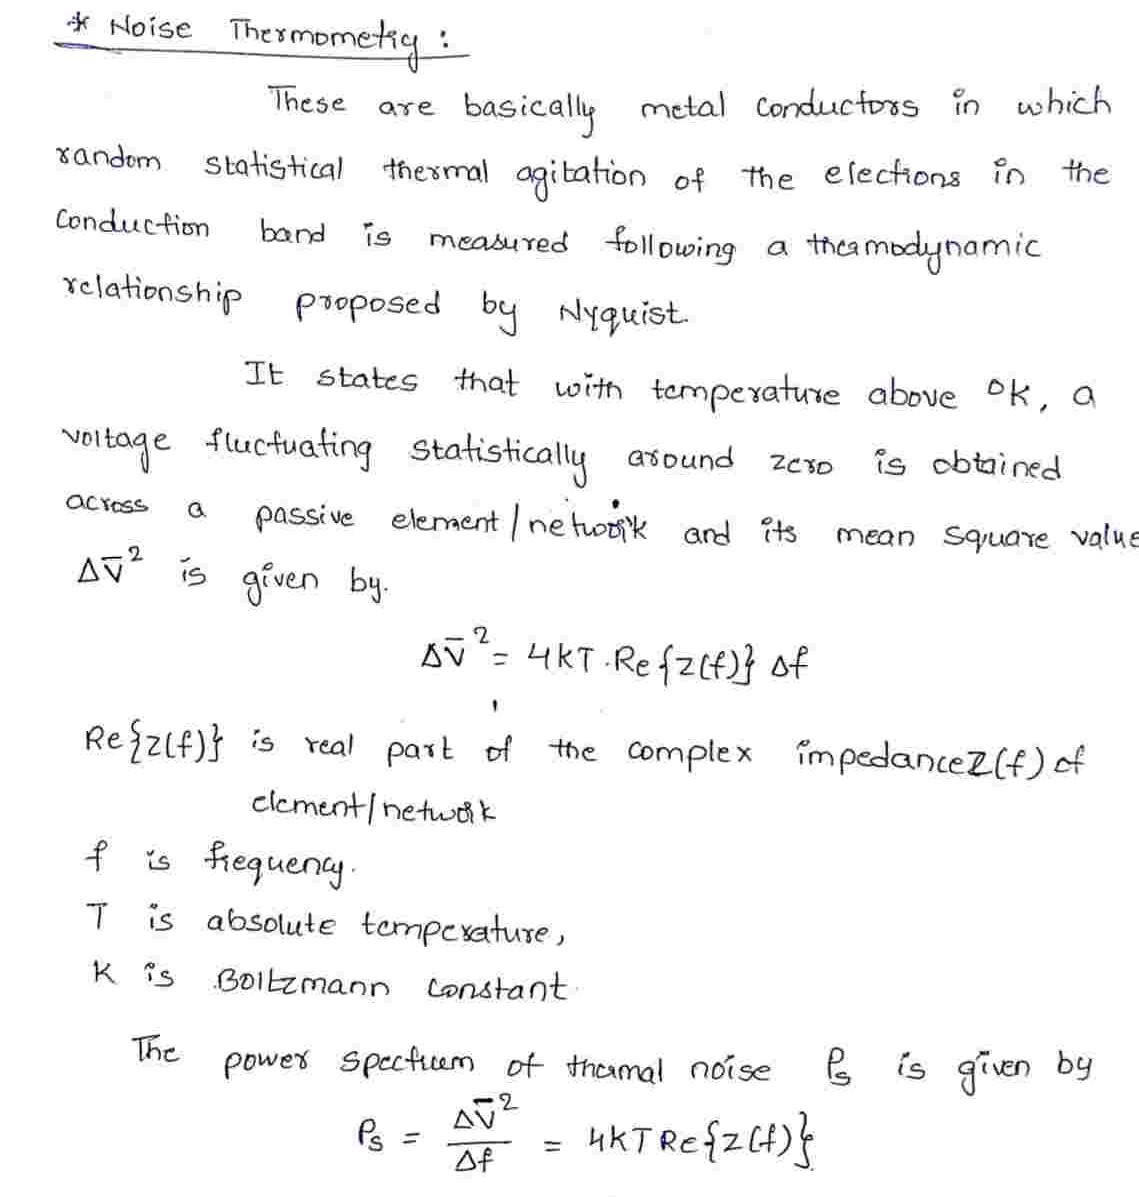 * Noise Thermometry :
These are basically metal conductors in which
random statistical thermal agitation of the elections in the
Conduction band is measured following a thermodynamic
relationship proposed by Nyquist.
It states that with temperature above 0K, a
voltage fluctuating statistically around zero is obtained
across a passive element / network and its mean square value
ΔV̄² is given by.
ΔV̄² = 4kT.Re{Z(f)} Δf
Re{Z(f)} is real part of the complex impedance Z(f) of
element/network
f is frequency.
T is absolute temperature,
K is Boltzmann constant.
The power spectrum of thermal noise Ps is given by
Ps = ΔV̄² / Δf = 4KT Re{Z(f)}